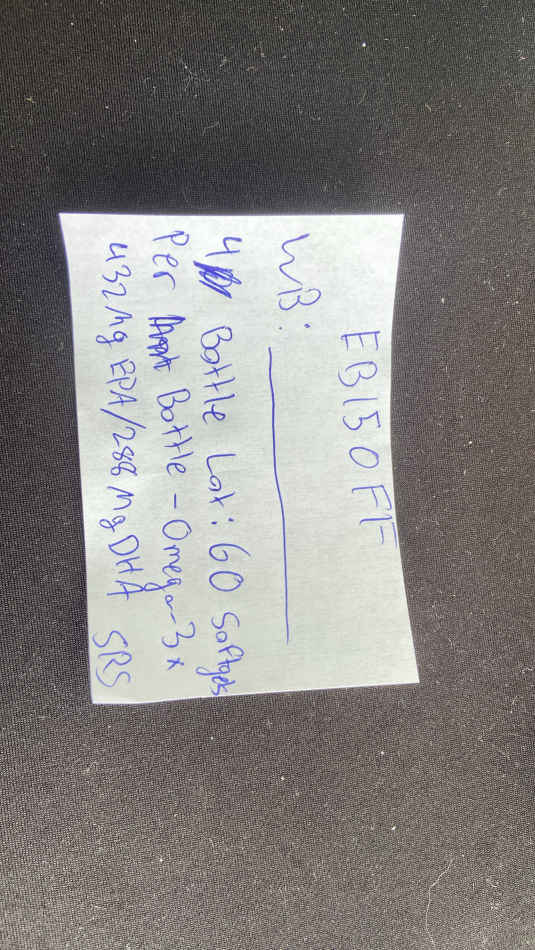 EB150FF
WB:
4 Bottle Lot: 60 Softgels
Per Bottle - Omega-3x
432mg EPA/288 mg DHA SRS